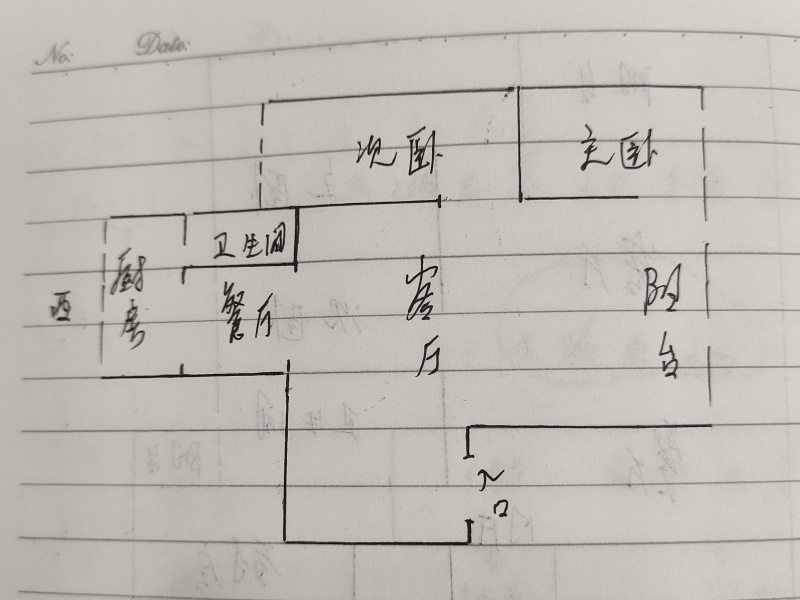 No: Date:
次卧 主卧
卫生间
厨房
西
餐厅
客厅
阳台
入口